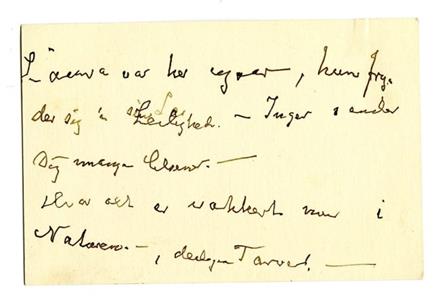 Laura var her igaar, hun fry-
der sig i sin Leilighed. — Inger sender
Dig mange Hilsener. —
Hvor alt er vakkert nu i
Naturen —, deilig Farver. —